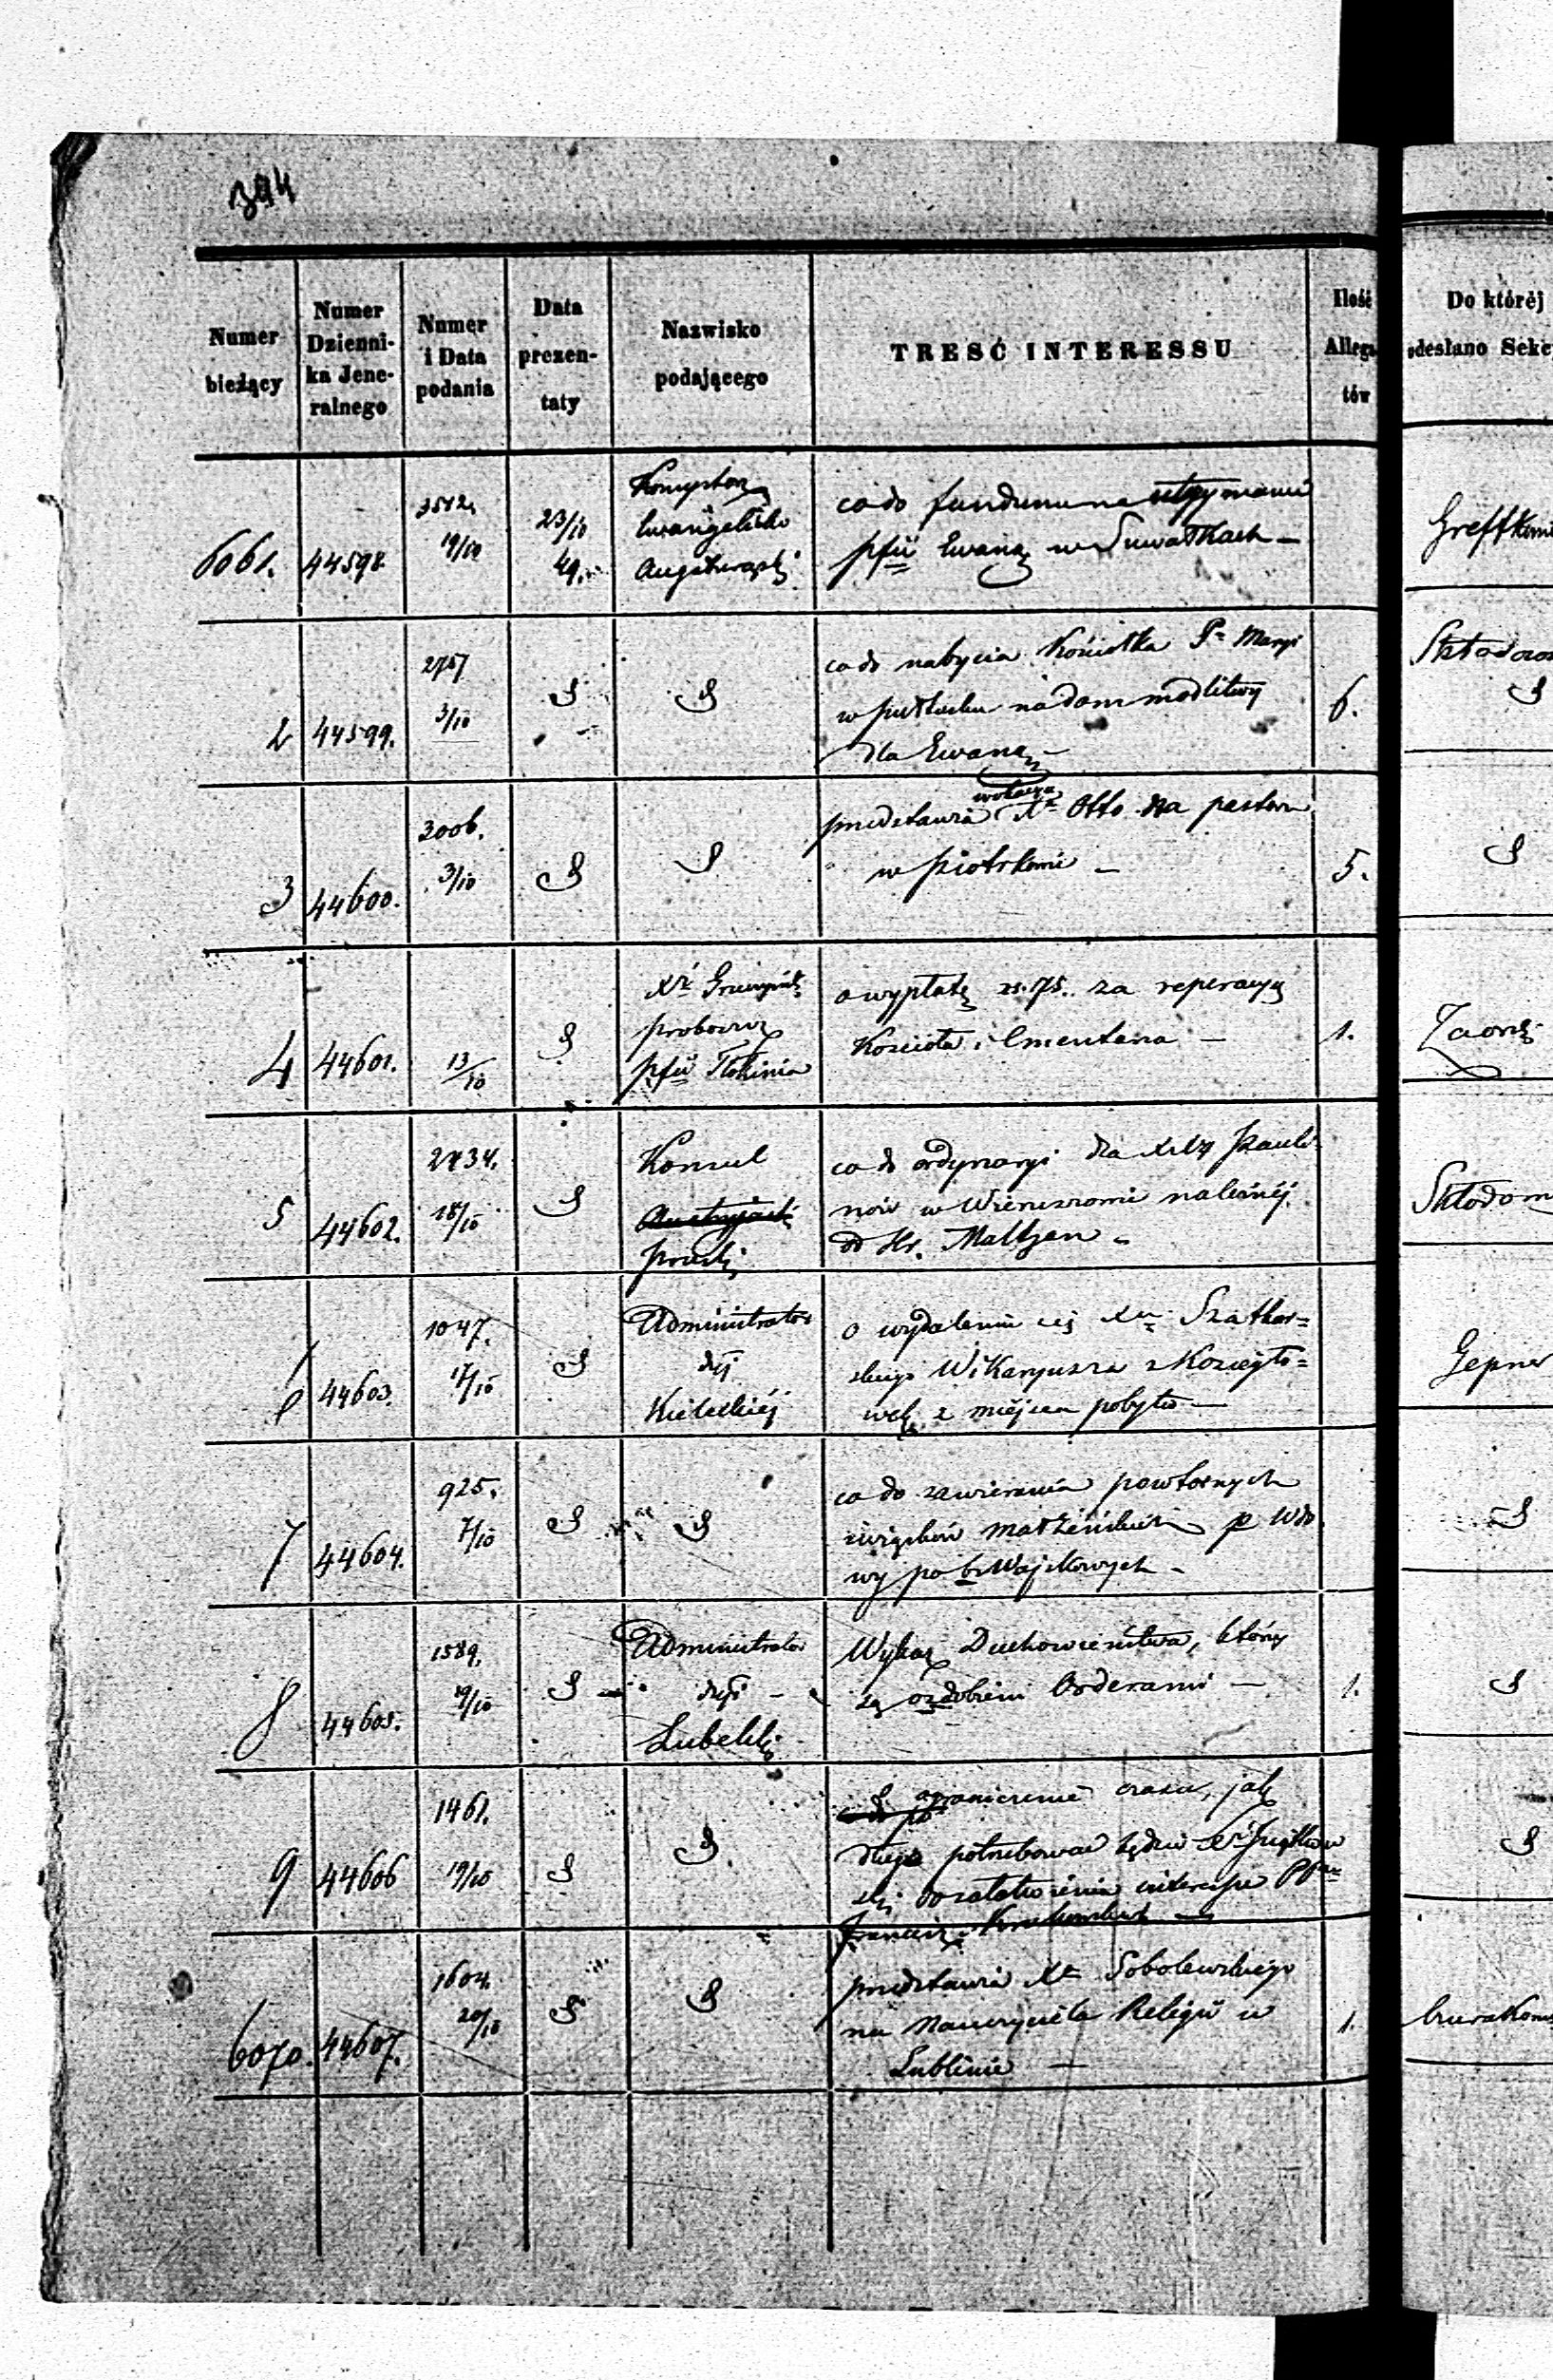 394
Numer bieżący
Numer Dzienni-ka Jene-ralnego
Numer i Data podania
Data prezen-taty
Nazwisko podającego
TREŚĆ INTERESSU
Ilość Allega tów
Do któréj odesłano Sekc
6061. 44598. 3542 19/10 23/10 49.
Konsystorz
Ewangelicko
Augsburgski
co do funduszu na utrzymanie
pfii Ewang w Suwałkach —
Greffkowi
2 44599. 2757 3/10 S S
co do nabycia Kościołka P. Maryi
w Pułtusku na dom modlitwy
dla Ewang —
6.
Skłodow
S
3 44600. 3006. 3/10 S S
wikarego
przedstawia X Otto na pastora
w Piotrkowie —
5.
S
4 44601. 13/10 S
Xdz
proboszcz
pfii Tłokinia
o wypłatę rs. 75. za reperacyę
Kościoła i Cmentarza —
1.
Zaorsk
5 44602. 2434. 18/10 S
Konsul
Austryjacki
Pruski
co do ordynaryi dla XXży Pauli
nów w Wieruszowie należnéj
od Hr. Maltzan —
Skłodow
6 44603. 1047. 17/10 S
Administrator
dyj
Kieleckiéj
o wydaleniu się Xa Szatkow=
skiego Wikaryusza z Koziegło=
wek z miejsca pobytu —
Gepner
7 44604. 925. 7/10 S S
co do zawierania powtórnych
związków małżeńskich p wdo
wy po b. Wojskowych —
S
8 44605. 1589. 19/10 S
Administrator
dyi
Lubelskiej
Wykaz Duchowieństwa, którzy
są ozdobieni Orderami —
1.
S
9 44606 1461. 19/10 S S
ograniczenie czasu, jak
długo potrzebować będzie X
ski do załatwienia interessu PP
Francisz
S
6070. 44607. 1604. 20/10 S S
przedstawia Xa Sobolewskiego
na Nauczyciela Religii w
Lublinie —
1.